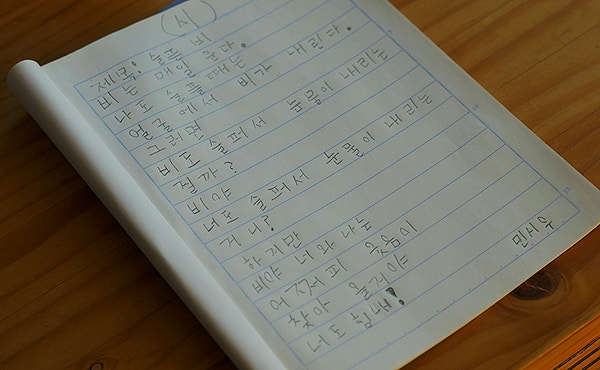 (시)
제목: 슬픈 비
비는 매일 운다.
나도 슬플 때는
얼굴에서 비가 내린다.
그러면
비도 슬퍼서 눈물이 내리는
걸까?
비야
너도 슬퍼서 눈물이 내리는
거니?
하지만
비야 너와 나는
어저피 웃음이
찾아 올거야
너도 힘내!
민시우